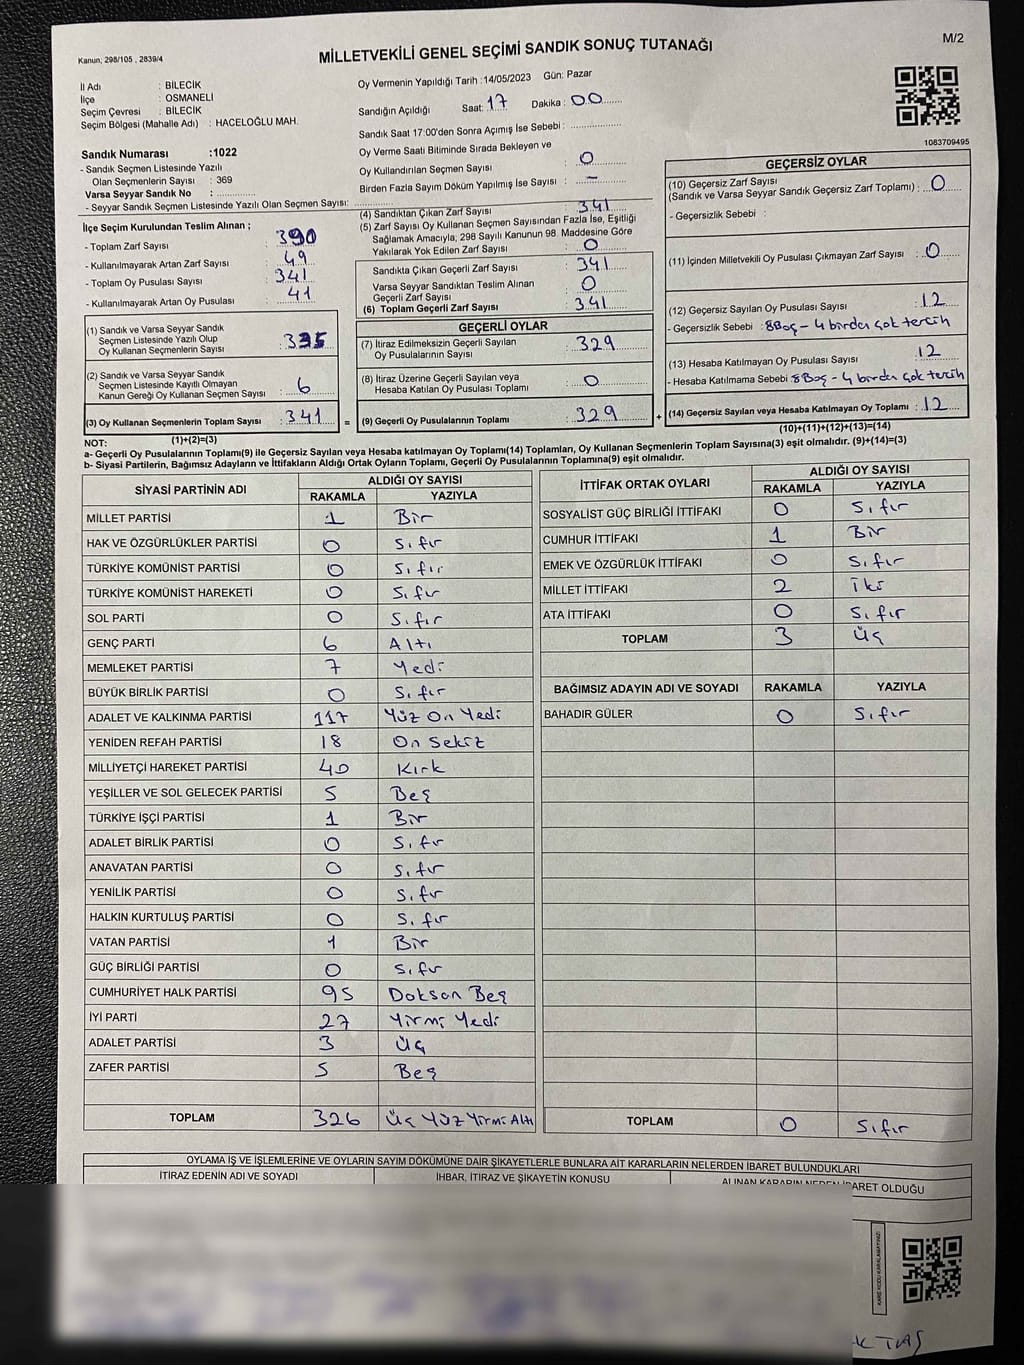 M/2
MİLLETVEKİLİ GENEL SEÇİMİ SANDIK SONUÇ TUTANAĞI
Kanun; 298/105 , 2839/4
İl Adı : BİLECİK
İlçe : OSMANELİ
Seçim Çevresi : BİLECİK
Seçim Bölgesi (Mahalle Adı) : HACELOĞLU MAH.
Sandık Numarası :1022
- Sandık Seçmen Listesinde Yazılı
Olan Seçmenlerin Sayısı : 369
Varsa Seyyar Sandık No :
- Seyyar Sandık Seçmen Listesinde Yazılı Olan Seçmen Sayısı:
Oy Vermenin Yapıldığı Tarih :14/05/2023 Gün: Pazar
Sandığın Açıldığı Saat: 17 Dakika : 00
Sandık Saat 17:00'den Sonra Açımış İse Sebebi :
Oy Verme Saati Bitiminde Sırada Bekleyen ve
Oy Kullandırılan Seçmen Sayısı : 0
Birden Fazla Sayım Döküm Yapılmış İse Sayısı : -
1083709495
İlçe Seçim Kurulundan Teslim Alınan ;
- Toplam Zarf Sayısı : 390
- Kullanılmayarak Artan Zarf Sayısı : 49
- Toplam Oy Pusulası Sayısı : 341
- Kullanılmayarak Artan Oy Pusulası : 41
(1) Sandık ve Varsa Seyyar Sandık
Seçmen Listesinde Yazılı Olup
Oy Kullanan Seçmenlerin Sayısı : 335
(2) Sandık ve Varsa Seyyar Sandık
Seçmen Listesinde Kayıtlı Olmayan
Kanun Gereği Oy Kullanan Seçmen Sayısı : 6
(3) Oy Kullanan Seçmenlerin Toplam Sayısı : 341 =
(1)+(2)=(3)
(4) Sandıktan Çıkan Zarf Sayısı : 341
(5) Zarf Sayısı Oy Kullanan Seçmen Sayısından Fazla İse, Eşitliği
Sağlamak Amacıyla, 298 Sayılı Kanunun 98. Maddesine Göre
Yakılarak Yok Edilen Zarf Sayısı : 0
Sandıkta Çıkan Geçerli Zarf Sayısı : 341
Varsa Seyyar Sandıktan Teslim Alınan
Geçerli Zarf Sayısı : 0
(6) Toplam Geçerli Zarf Sayısı : 341
GEÇERLİ OYLAR
(7) İtiraz Edilmeksizin Geçerli Sayılan
Oy Pusulalarının Sayısı : 329
(8) İtiraz Üzerine Geçerli Sayılan veya
Hesaba Katılan Oy Pusulası Toplamı : 0
(9) Geçerli Oy Pusulalarının Toplamı : 329 +
GEÇERSİZ OYLAR
(10) Geçersiz Zarf Sayısı
(Sandık ve Varsa Seyyar Sandık Geçersiz Zarf Toplamı) : 0
- Geçersizlik Sebebi :
(11) İçinden Milletvekili Oy Pusulası Çıkmayan Zarf Sayısı : 0
(12) Geçersiz Sayılan Oy Pusulası Sayısı : 12
- Geçersizlik Sebebi : 8Boş - 4 birden çok tercih
(13) Hesaba Katılmayan Oy Pusulası Sayısı : 12
- Hesaba Katılmama Sebebi : 8Boş - 4 birden çok tercih
(14) Geçersiz Sayılan veya Hesaba Katılmayan Oy Toplamı : 12
(10)+(11)+(12)+(13)=(14)
NOT:
a- Geçerli Oy Pusulalarının Toplamı(9) ile Geçersiz Sayılan veya Hesaba katılmayan Oy Toplamı(14) Toplamları, Oy Kullanan Seçmenlerin Toplam Sayısına(3) eşit olmalıdır. (9)+(14)=(3)
b- Siyasi Partilerin, Bağımsız Adayların ve İttifakların Aldığı Ortak Oyların Toplamı, Geçerli Oy Pusulalarının Toplamına(9) eşit olmalıdır.
SİYASİ PARTİNİN ADI ALDIĞI OY SAYISI
RAKAMLA YAZIYLA
MİLLET PARTİSİ 1 Bir
HAK VE ÖZGÜRLÜKLER PARTİSİ 0 Sıfır
TÜRKİYE KOMÜNİST PARTİSİ 0 Sıfır
TÜRKİYE KOMÜNİST HAREKETİ 0 Sıfır
SOL PARTİ 0 Sıfır
GENÇ PARTİ 6 Altı
MEMLEKET PARTİSİ 7 Yedi
BÜYÜK BİRLİK PARTİSİ 0 Sıfır
ADALET VE KALKINMA PARTİSİ 117 Yüz On Yedi
YENİDEN REFAH PARTİSİ 18 On Sekiz
MİLLİYETÇİ HAREKET PARTİSİ 40 Kırk
YEŞİLLER VE SOL GELECEK PARTİSİ 5 Beş
TÜRKİYE İŞÇİ PARTİSİ 1 Bir
ADALET BİRLİK PARTİSİ 0 Sıfır
ANAVATAN PARTİSİ 0 Sıfır
YENİLİK PARTİSİ 0 Sıfır
HALKIN KURTULUŞ PARTİSİ 0 Sıfır
VATAN PARTİSİ 1 Bir
GÜÇ BİRLİĞİ PARTİSİ 0 Sıfır
CUMHURİYET HALK PARTİSİ 95 Doksan Beş
İYİ PARTİ 27 Yirmi Yedi
ADALET PARTİSİ 3 Üç
ZAFER PARTİSİ 5 Beş
TOPLAM 326 Üç Yüz Yirmi Altı
İTTİFAK ORTAK OYLARI ALDIĞI OY SAYISI
RAKAMLA YAZIYLA
SOSYALİST GÜÇ BİRLİĞİ İTTİFAKI 0 Sıfır
CUMHUR İTTİFAKI 1 Bir
EMEK VE ÖZGÜRLÜK İTTİFAKI 0 Sıfır
MİLLET İTTİFAKI 2 İki
ATA İTTİFAKI 0 Sıfır
TOPLAM 3 Üç
BAĞIMSIZ ADAYIN ADI VE SOYADI RAKAMLA YAZIYLA
BAHADIR GÜLER 0 Sıfır
TOPLAM 0 Sıfır
OYLAMA İŞ VE İŞLEMLERİNE VE OYLARIN SAYIM DÖKÜMÜNE DAİR ŞİKAYETLERLE BUNLARA AİT KARARLARIN NELERDEN İBARET BULUNDUKLARI
İTİRAZ EDENİN ADI VE SOYADI İHBAR, İTİRAZ VE ŞİKAYETİN KONUSU ALINAN KARARIN NEDEN İBARET OLDUĞU
KARE KODU KARALAMAYINIZ!